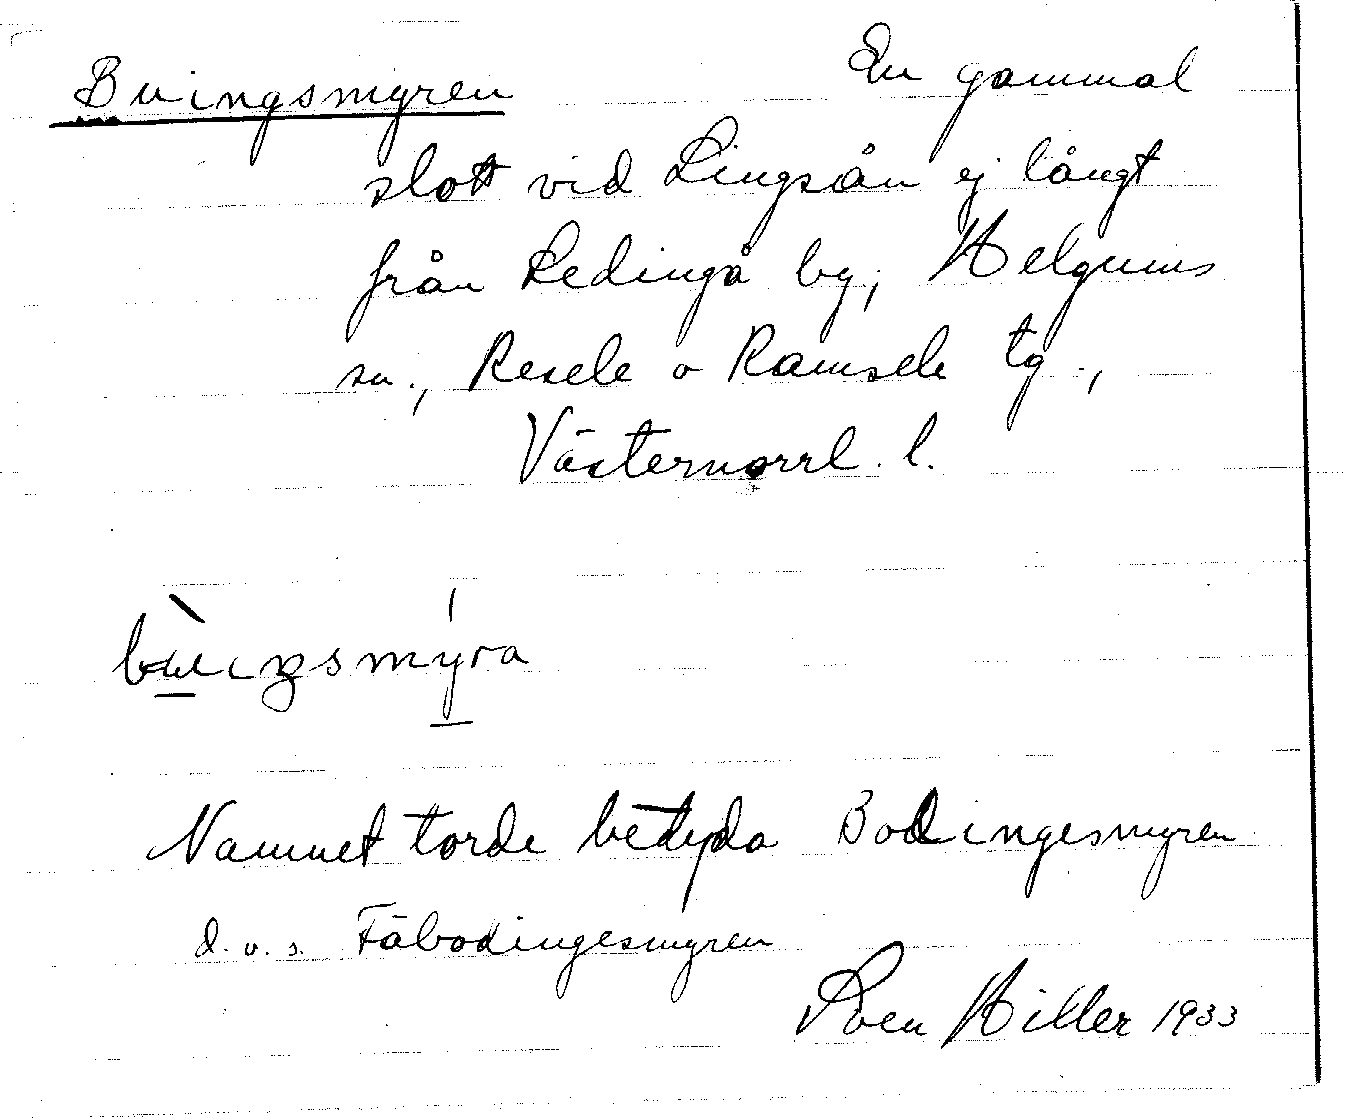 Buingsmyren En gammal
slott vid Lingsån ej långt
från Ledingå by, Helgums
sn., Resele o Ramsele tg.,
Västernorrl. l.
Namnet torde betyda Bodingesmyren
d.v.s. Fäbodingesmyren
Sven Hiller 1933